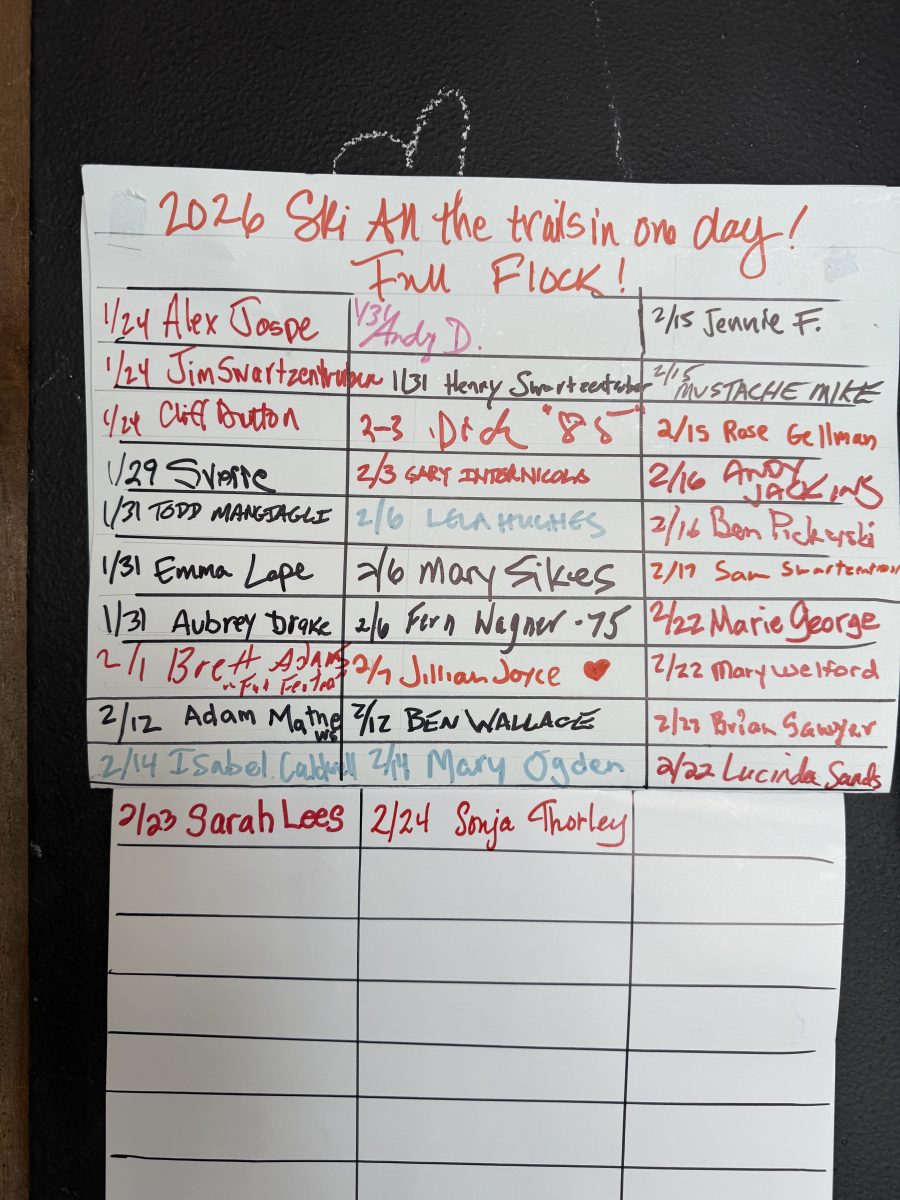 2026 Ski All the trails in one day!
Full Flock!
1/24 Alex Jospe
1/31 Andy D.
2/15 Jennie F.
1/24 Jim Swartzentruber
1/31 Henry Swartzentruber
2/15 MUSTACHE MIKE
1/24 Cliff Button
2-3 Dick "85"
2/15 Rose Gellman
1/29 Sverre
2/3 GARY INTERNICOLA
2/16 ANDY JACKINS
1/31 TODD MANGIAGLI
2/6 LELA HUGHES
2/16 Ben
1/31 Emma Lape
2/6 Mary Sikes
2/17 Sam Swartzentruber
1/31 Aubrey Drake
2/6 Fern Wagner -75
2/22 Marie George
2/1 Brett Adams
2/7 Jillian Joyce ❤
2/22 Mary Welford
2/12 Adam Mathews
2/12 BEN WALLACE
2/22 Brian Sawyer
2/14 Isabel Caldwell
2/14 Mary Ogden
2/22 Lucinda Sands
2/23 Sarah Lees
2/24 Sonja Thorley